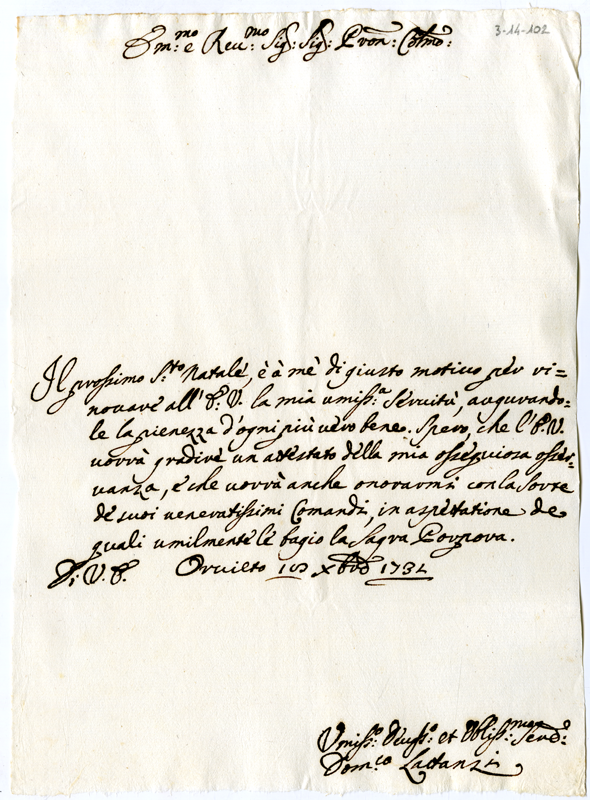 Em:mo e Reu:mo Sig: Sig: Pron: Colmo:
3-14-102
Il prossimo S:to Natale, è à mè di giusto motiuo per ri=
nouare all' E: V. la mia umiss:a Seruitù, augurando=
le la pienezza d'ogni più uero bene. Spero, che l'E. V.
uorrà gradire un attestato della mia ossequiosa osser=
uanza, e che uorrà anche onorarmi con la Sorte
de suoi ueneratissimi Comandi, in aspettatione de
quali umilmente le bagio la Sagra Porpora.
Di V. E. Oruieto Xbre
Umiss: Deuss:o et Obliss: Seruo:
Dom:co Lattanzi